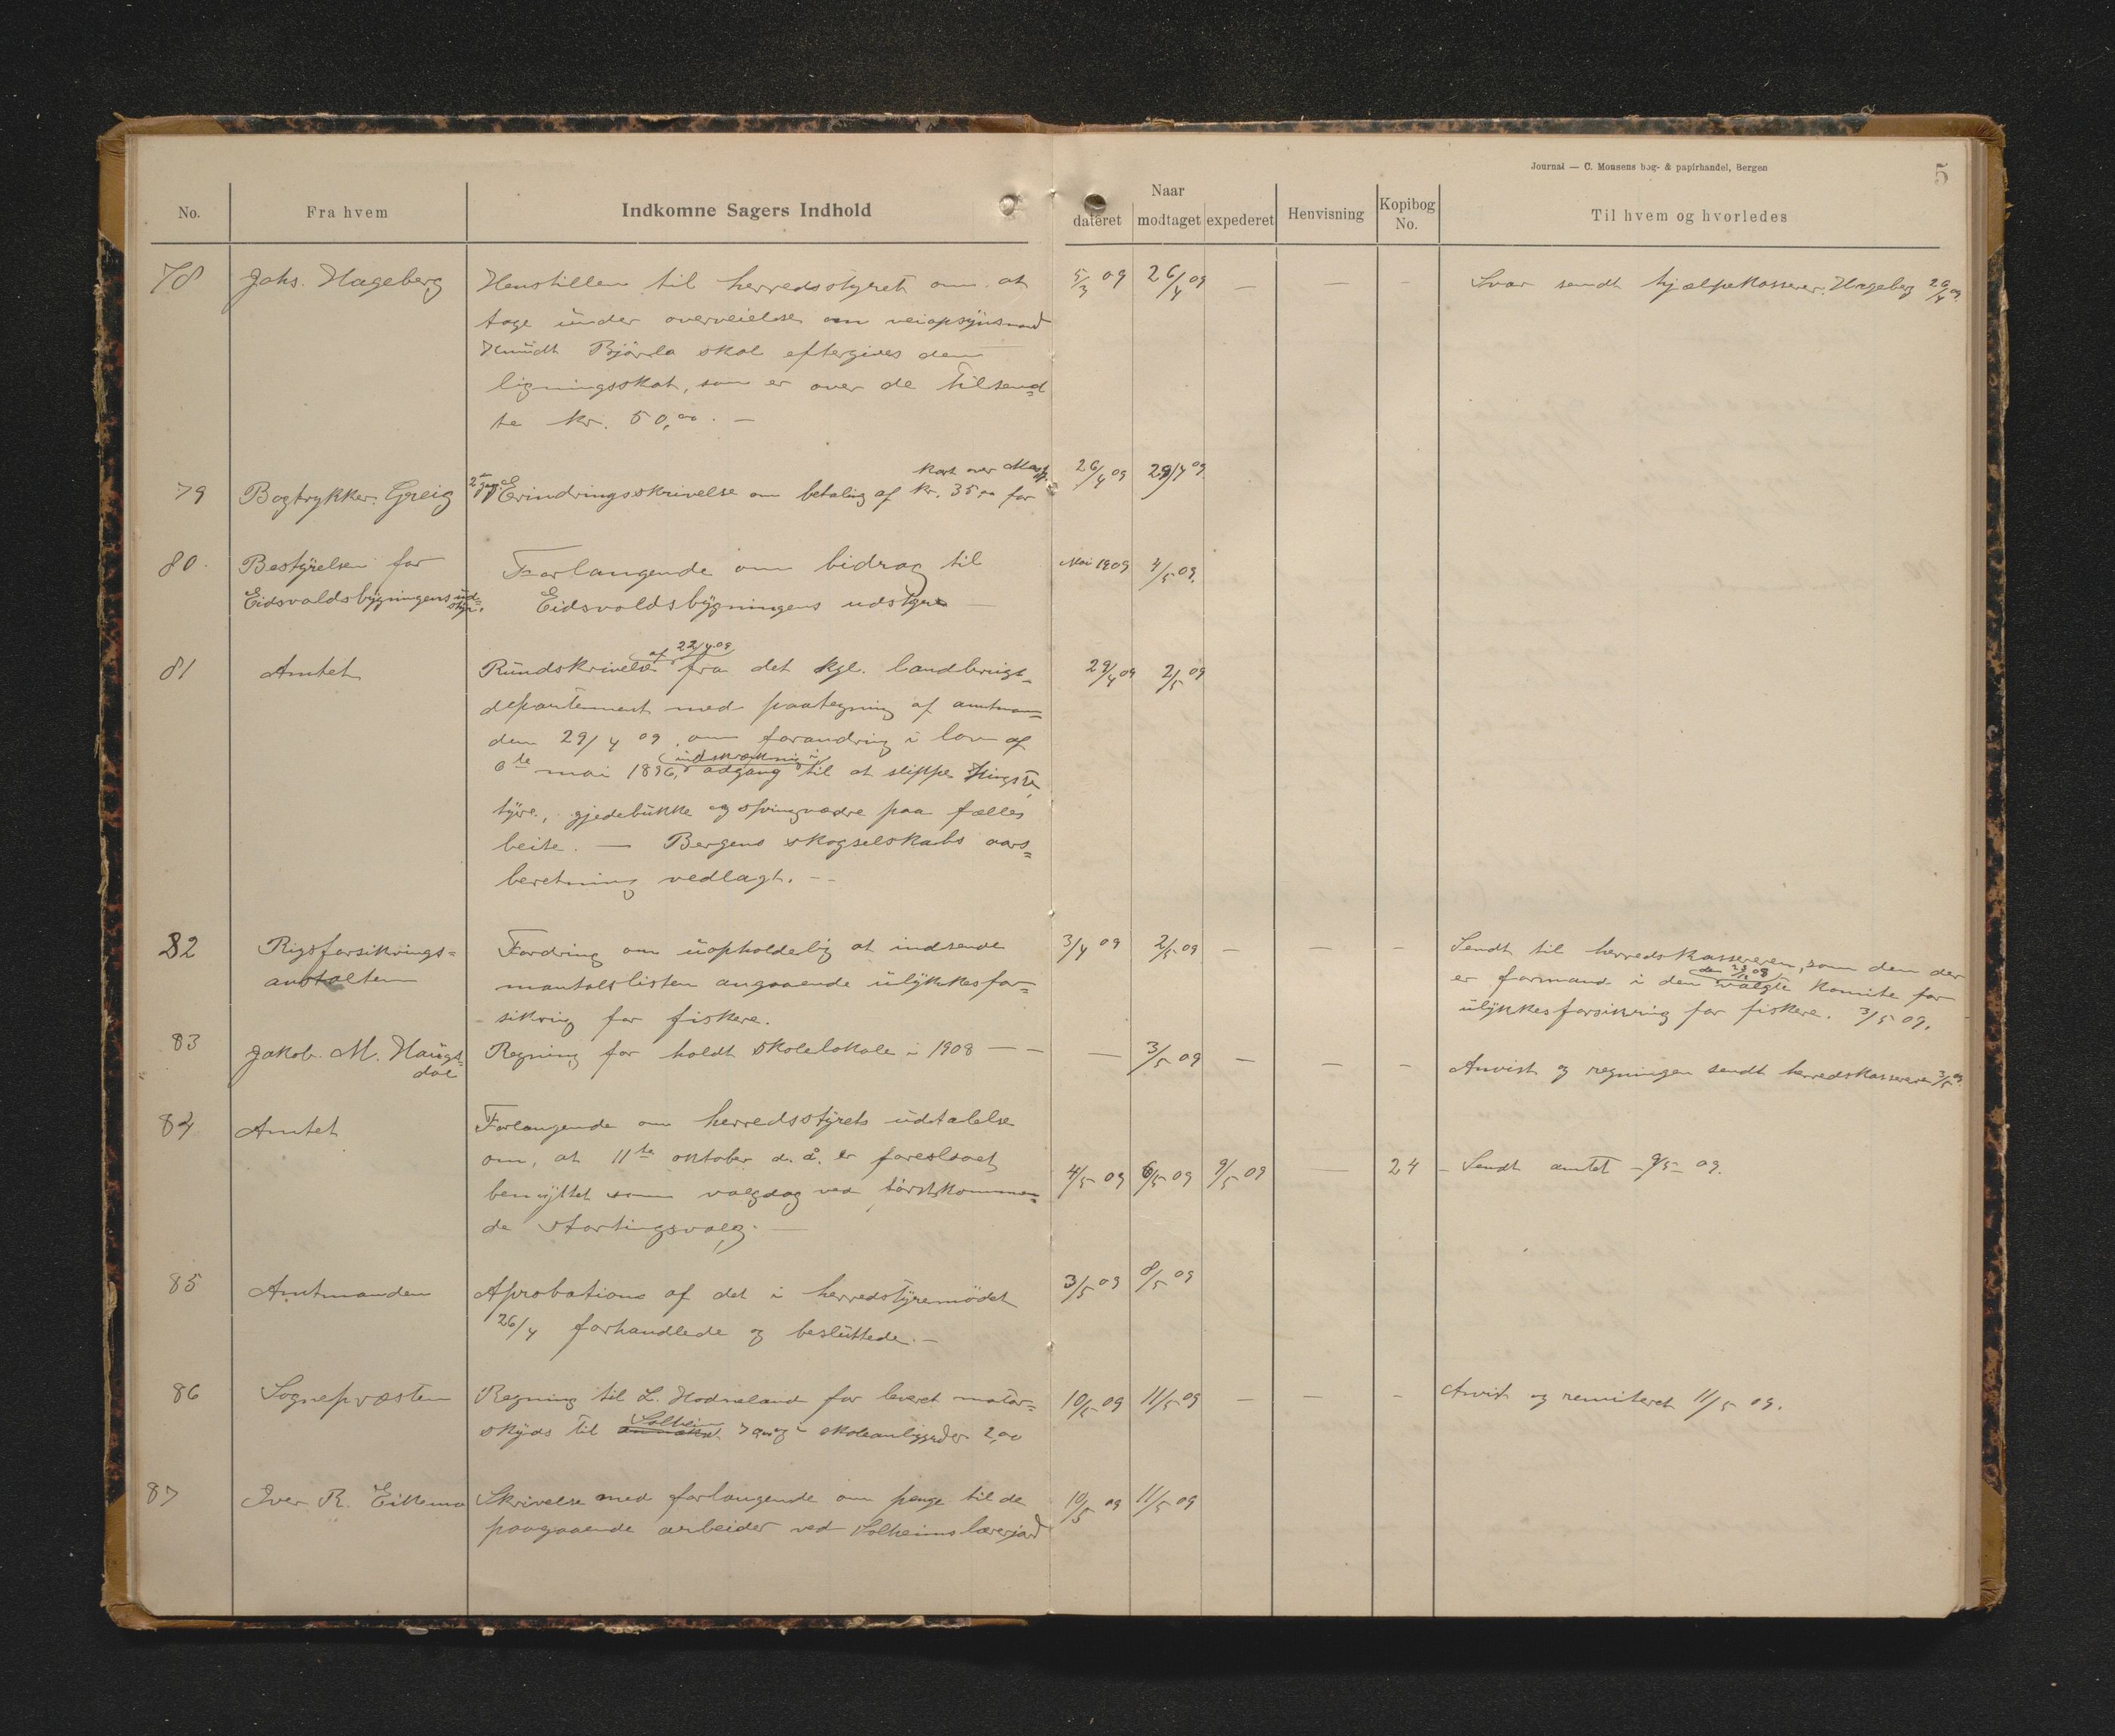 Journal — C. Monsens bog- & papirhandel, Bergen
5
No.
Fra hvem
Indkomne Sagers Indhold
Naar
dateret
modtaget
expederet
Henvisning
Kopibog
No.
Til hvem og hvorledes
78 Johs. Hageberg Henstillen til herredsstyret om at 5/3 09 26/4 09 — — — Svar sendt hjælpekasserer Hageberg 26/4 09
tage under overveielse om veiopsynsmand
Knudt Bjørlo skal eftergives den
ligningsskat, som er over de tilsend=
te kr. 50,00. —
kart over
79 Bogtrykker Greig 2den gang Erindringsskrivelse om betaling af kr. 35,00 for 26/4 09 29/4 09
80. Bestyrelsen for Forlangende om bidrag til Mai 1909 4/5 09.
Eidsvoldsbygningens ud=
styr. Eidsvoldsbygningens udstyr —
af 22/4 09
81 Amtet Rundskrivelse fra det kgl. landbrugs= 29/4 09 2/5 09
departement med paategning af amtman=
den 29/4 09, om forandring i lov af
indskrækning i
6te mai 1896, adgang til at slippe hingste,
tyre, gjedebukke og springvædre paa fælles
beite. — Bergens skogselskabs aars=
beretning vedlagt. —
82 Rigsforsikrings= Fordring om uopholdelig at indsende 3/4 09 2/5 09 — — — Sendt til herredskassereren, som den der
anstalten mantalslisten angaaende ulykkesfor= er formand i den valgte komite for
sikring for fiskere. ulykkesforsikring for fiskere. 3/5 09.
83 Jakob M. Haugs=
dal Regning for holdt skolelokale i 1908 — — — 3/5 09 — — — Anvist og regningen sendt herredskassereren 3/5 09
84 Amtet Forlangende om herredsstyrets udtalelse
om, at 11te oktober d. å. er foreslaaet
benyttet som valgdag ved førstkommen= 4/5 09 6/5 09 9/5 09 — 24 — Sendt amtet 9/5 09.
de stortingsvalg. —
85 Amtmanden Aprobations af det i herredstyremødet 3/5 09 8/5 09
26/4 forhandlede og besluttede. —
86 Sognepræsten Regning til L. Hodneland for leveret motor= 10/5 09 11/5 09 — — — Anvist og remiteret 11/5 09.
Solheim
skyds til i skoleanliggender 2,00
87 Iver R. Eikemo Skrivelse med forlangende om penge til de 10/5 09 11/5 09
paagaaende arbeider ved Solheims lærerjord